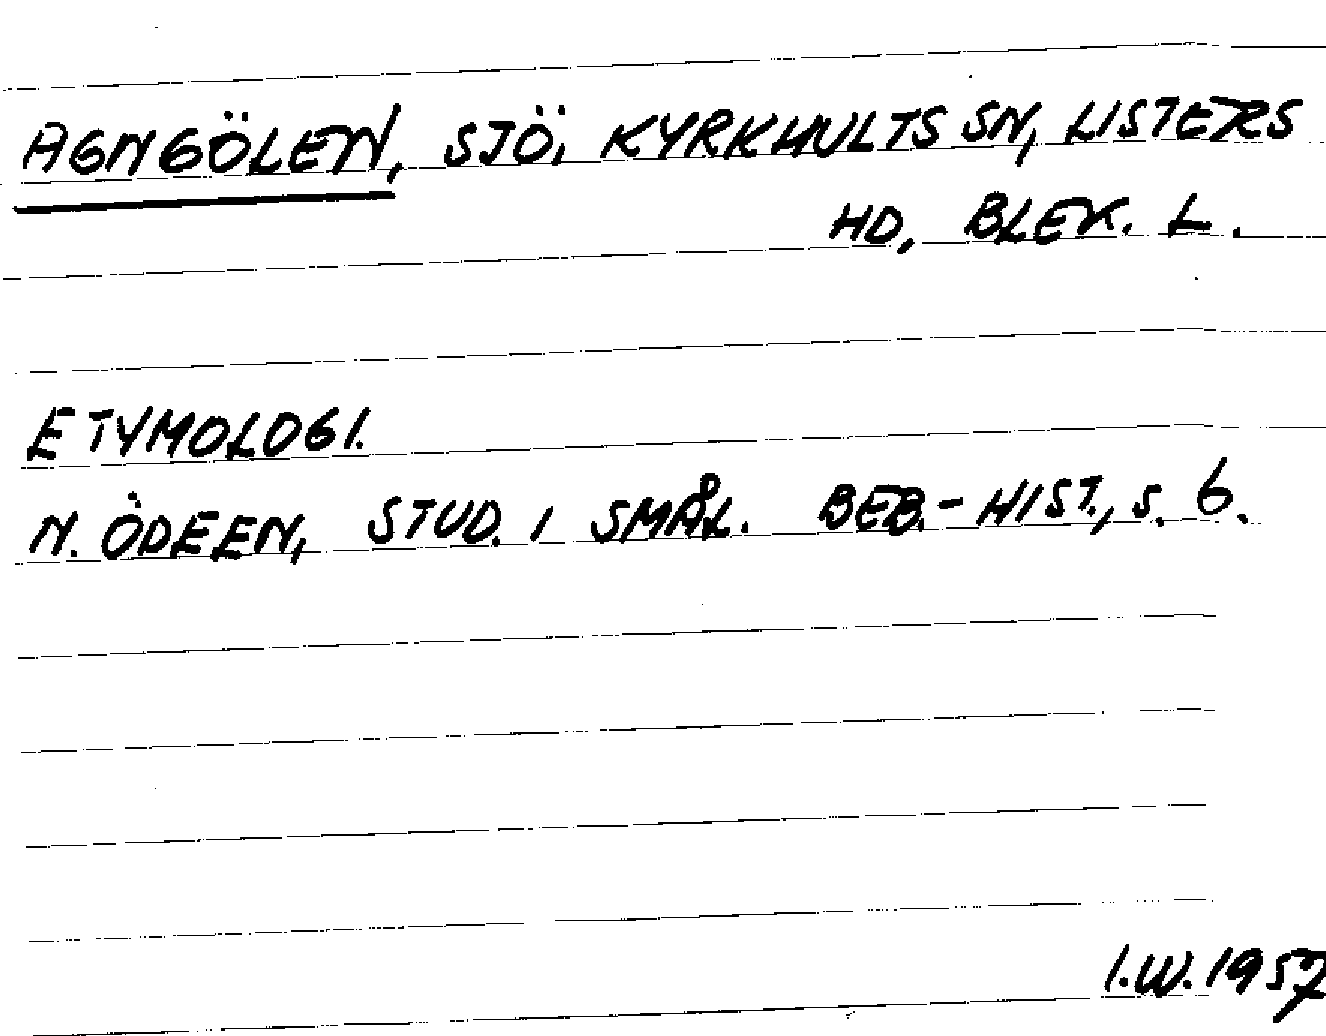 AGNGÖLEN, SJÖ, KYRKHULTS SN, LISTERS
HD, BLEK. L.
ETYMOLOGI.
N. ÖDEEN, STUD. I SMÅL. BEB.-HIST., S. 6.
I.W. 1957